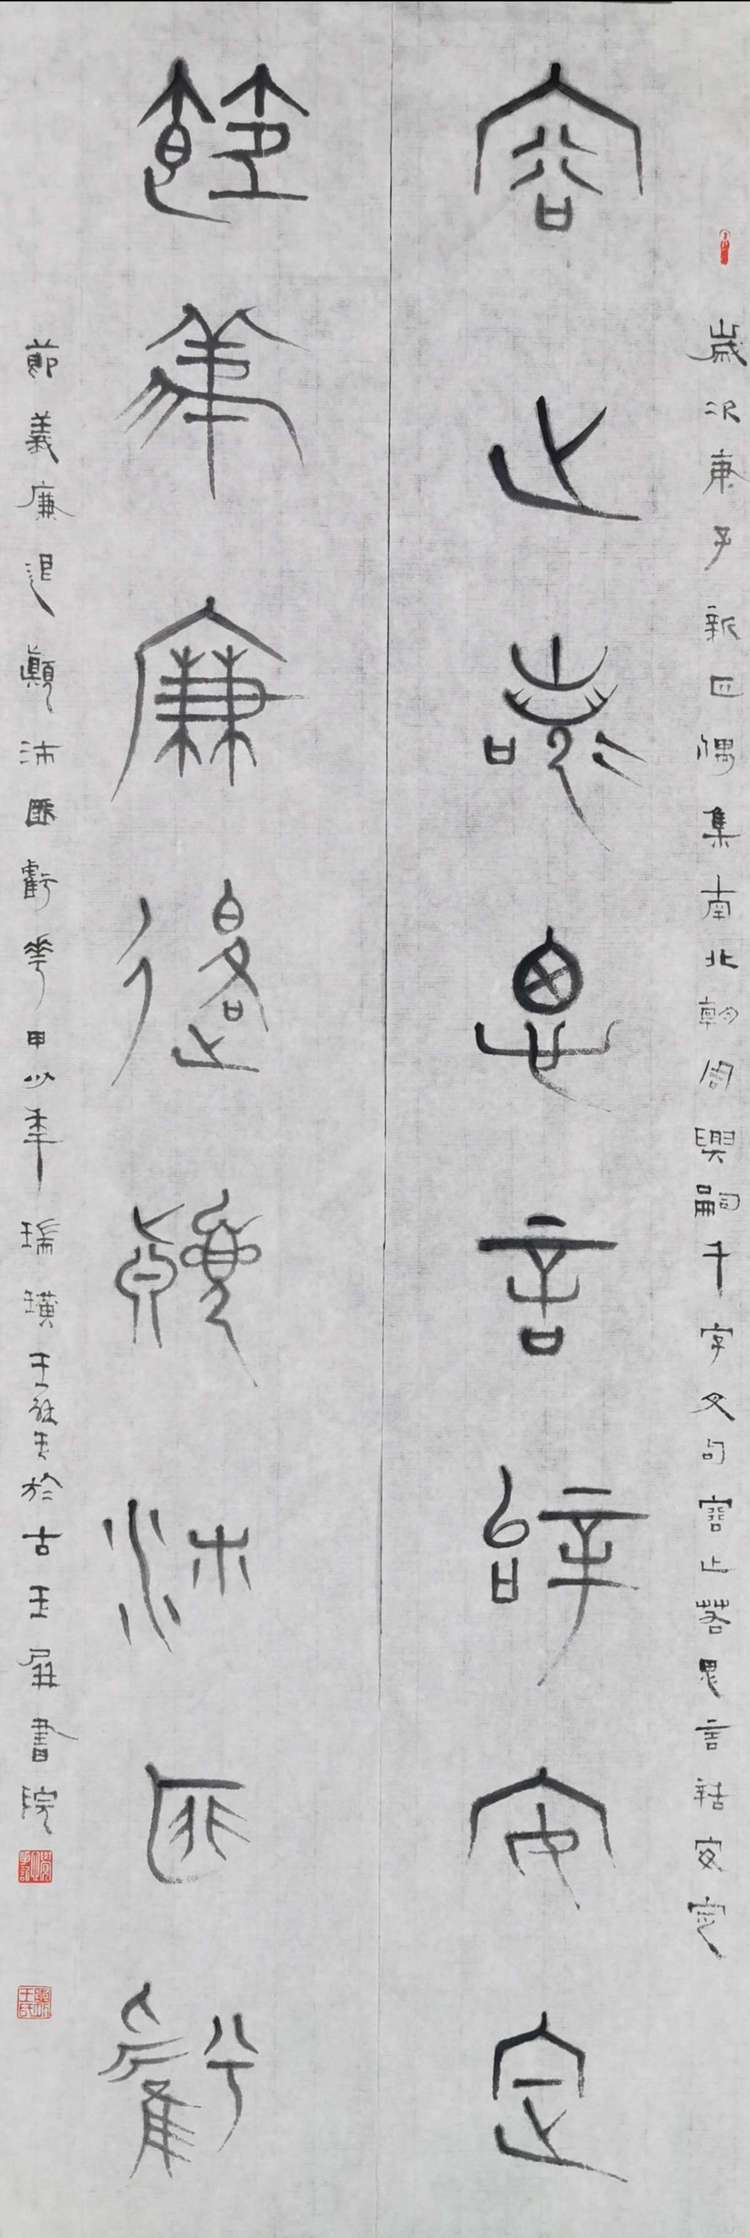 歲次庚子新正偶集南北朝周興嗣千字文句容止若思言辭安定
容止若思言辭安定
節義廉退顛沛匪虧
節義廉退顛沛匪虧華甲少年瑞璜王於古玉屏書院